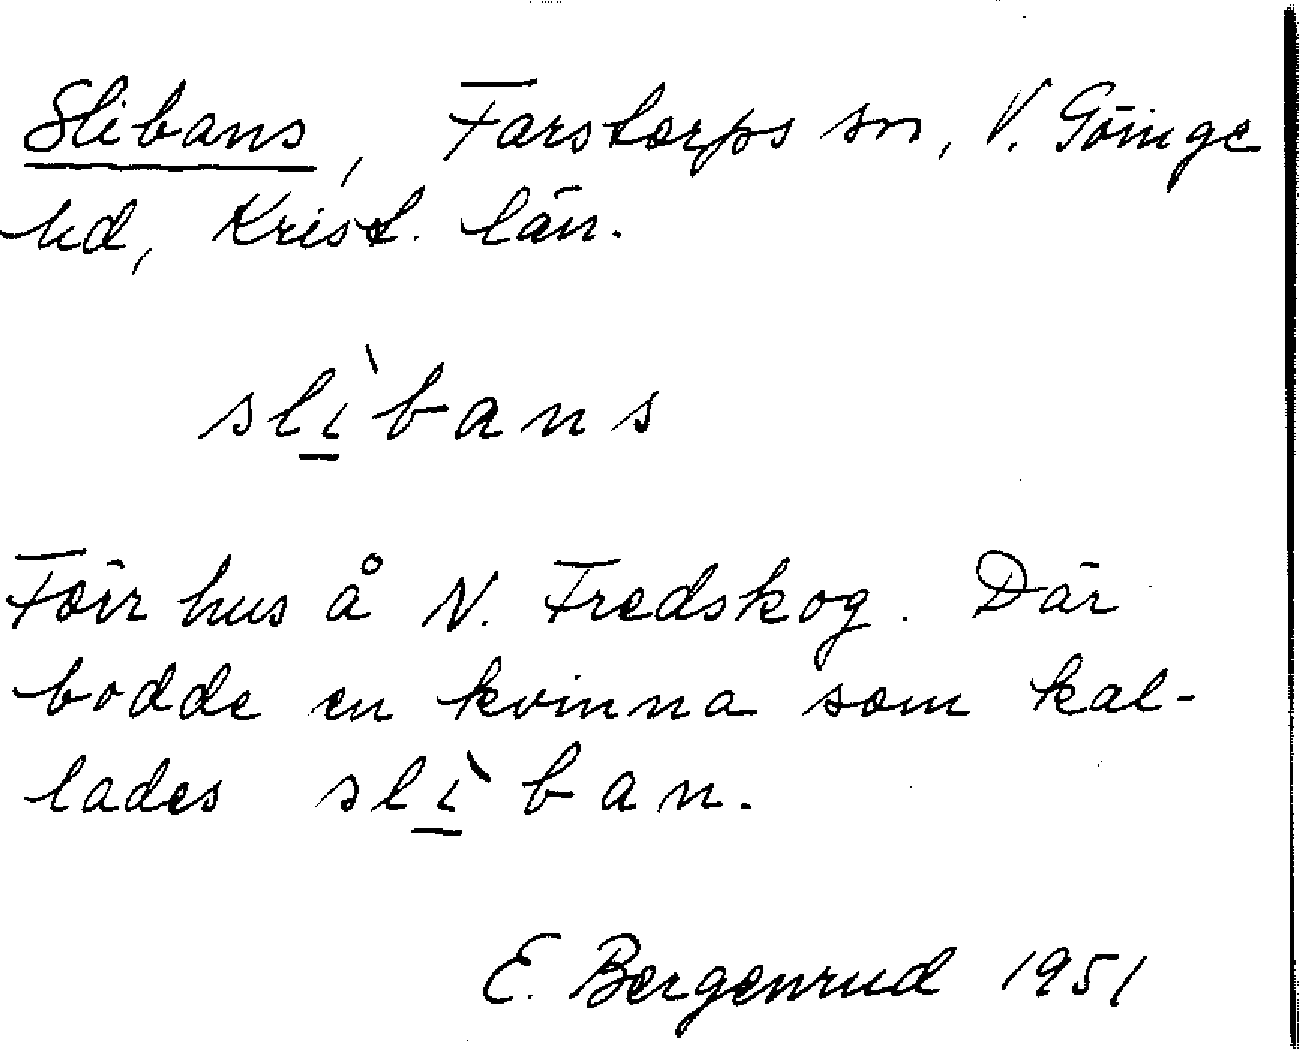 Slibans, Farstorps sn, V. Göinge
hd, Krist. län.
sli̱`bans
Förr hus å N. Fredskog. Där
bodde en kvinna som kal-
lades sli̱`ban.
E. Bergenrud 1951